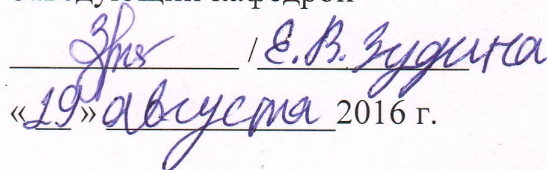 Заведующий кафедрой
/ Е.В. Зудина
«29» августа 2016 г.